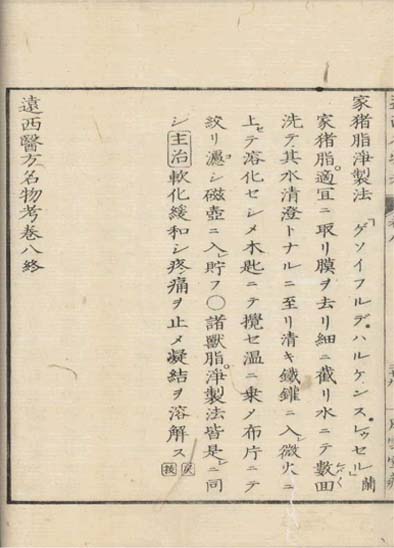 家猪脂淨製法 「ゲソイフルデ、ハルケンスレウセル」蘭
家猪脂適宜ニ取リ膜ヲ去リ細ニ截リ水ニテ數回
洗テ其水清澄トナルニ至リ清キ鐵鑵ニ入レ微火ニ
上セテ溶化セシメ木匙ニテ攪セ温ニ乗メ布片ニテ
絞リ濾シ磁壺ニ入レ貯フ〇諸獸脂淨製法皆是ニ同
シ 主治 軟化緩和シ疼痛ヲ止メ凝結ヲ溶解ス
遠西醫方名物考卷八終